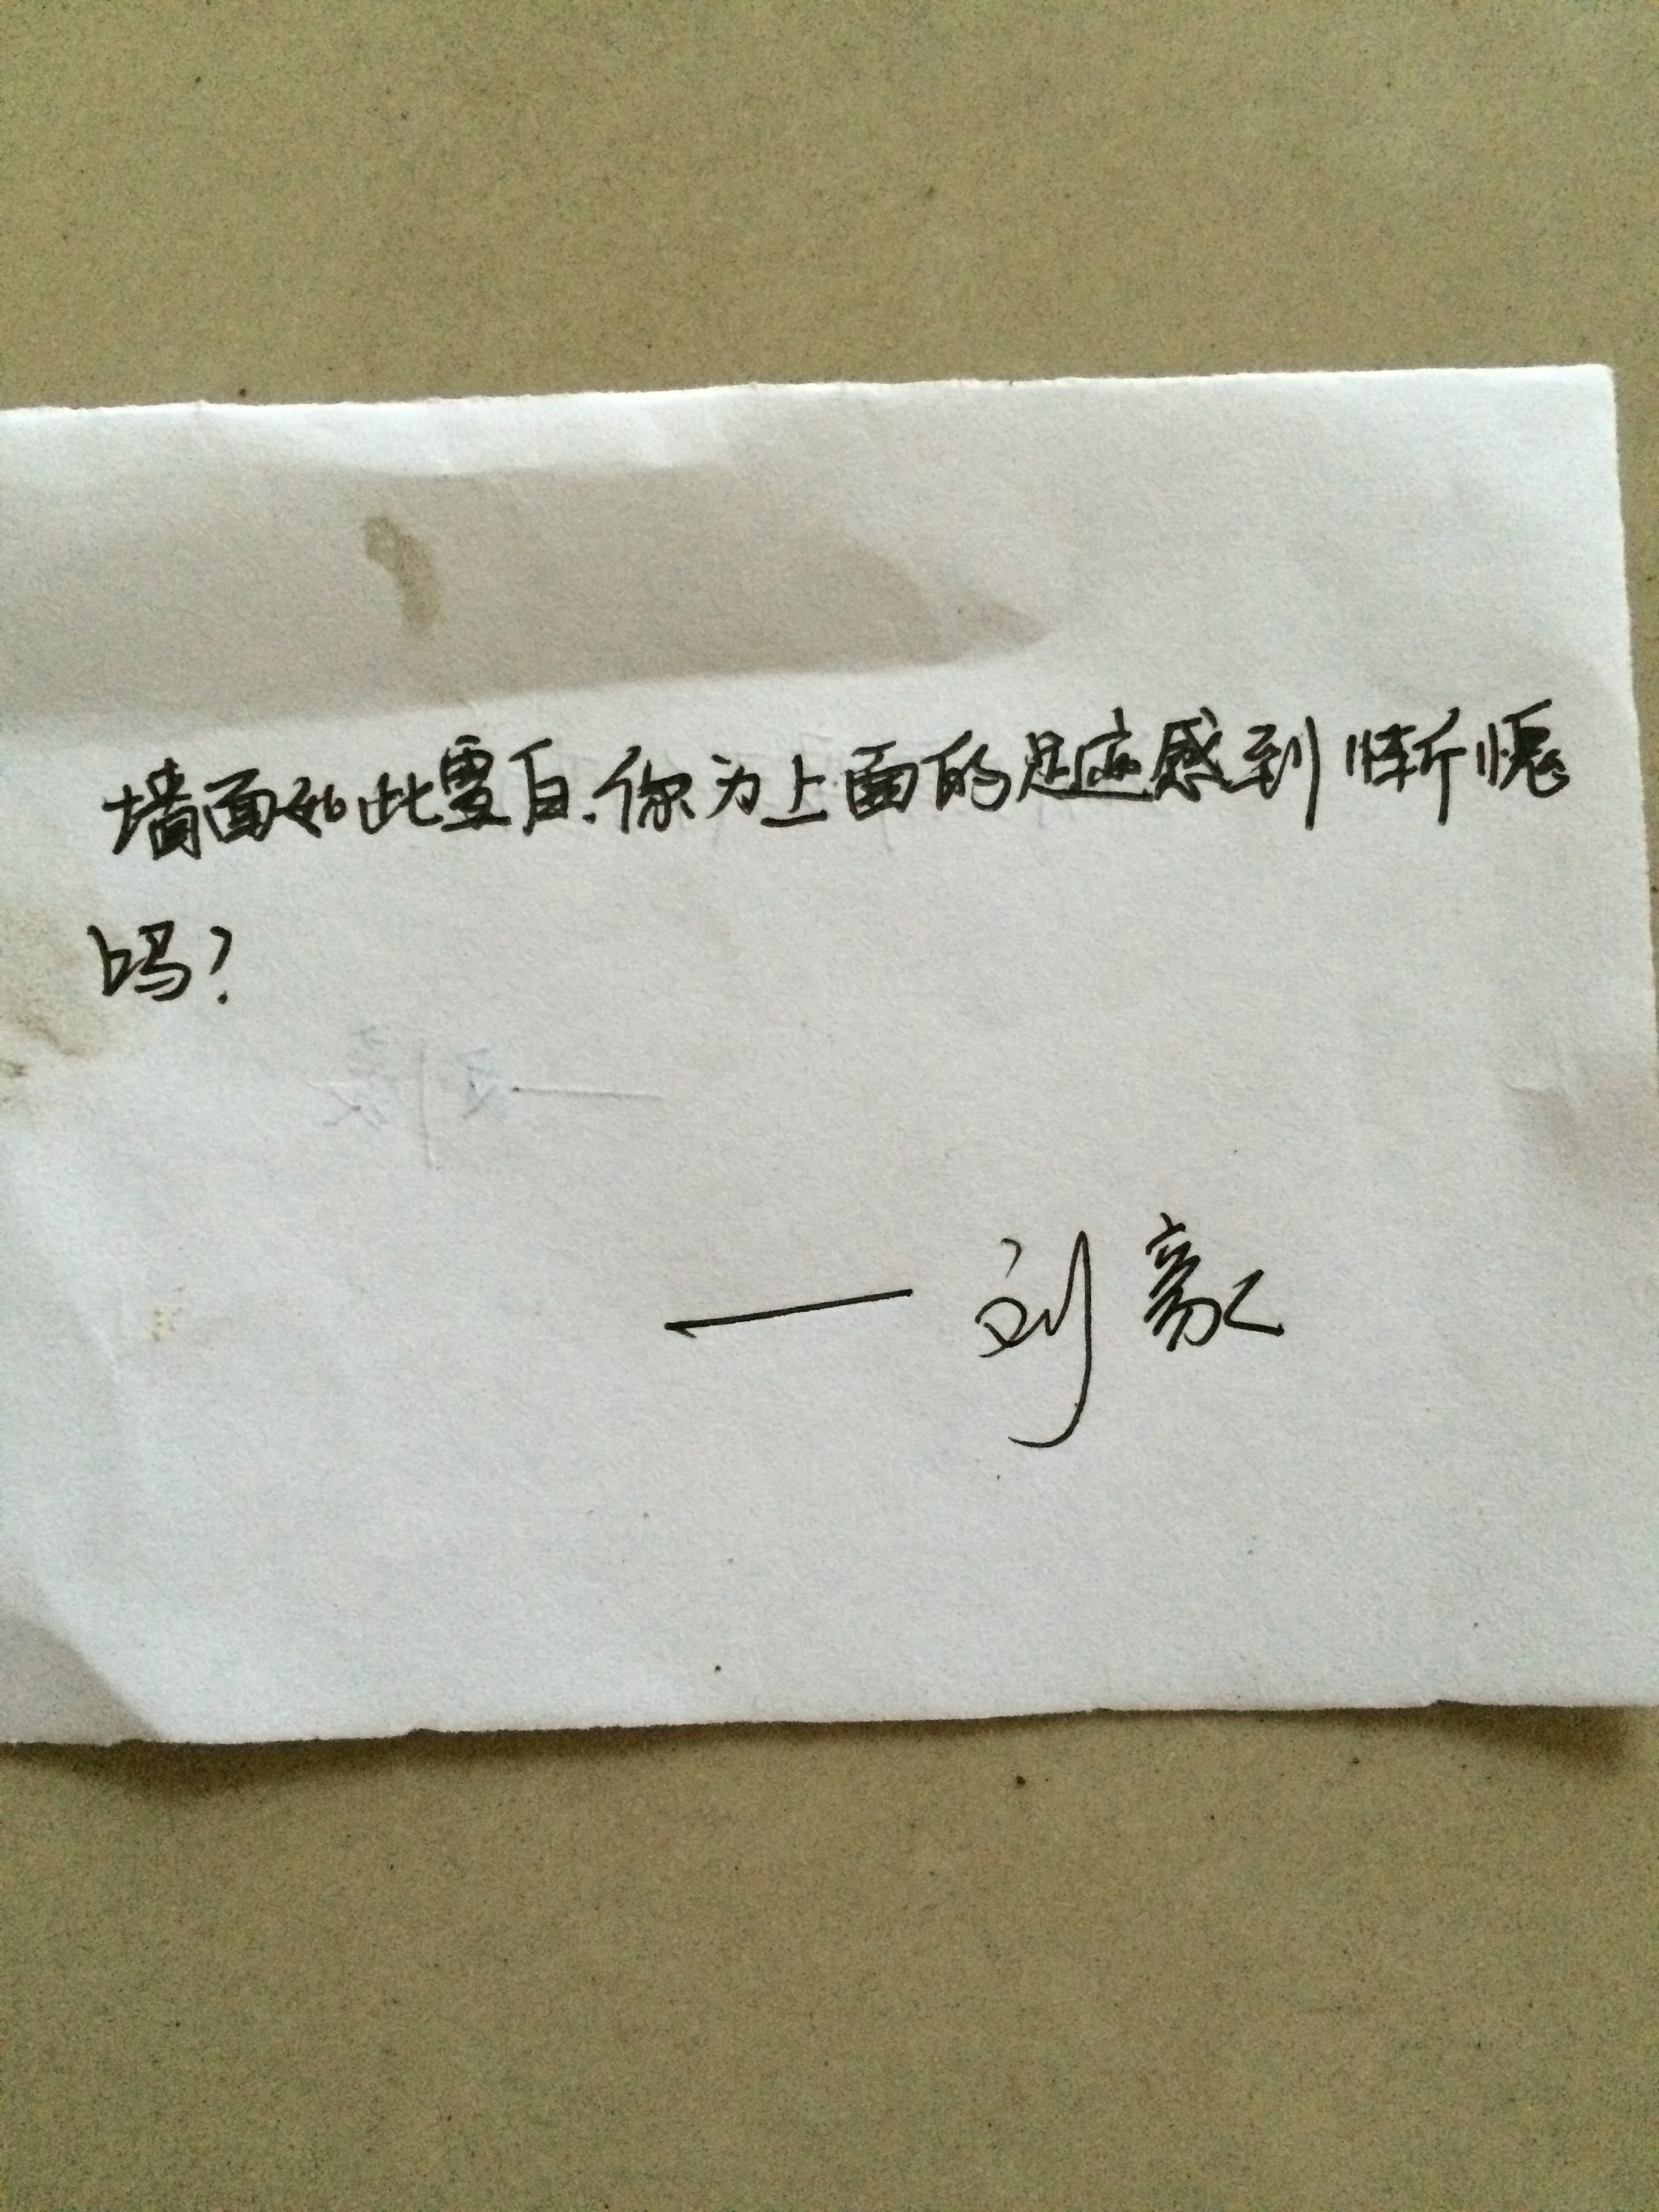 墙面如此雪白.你为上面的足迹感到惭愧
吗?
——刘毅